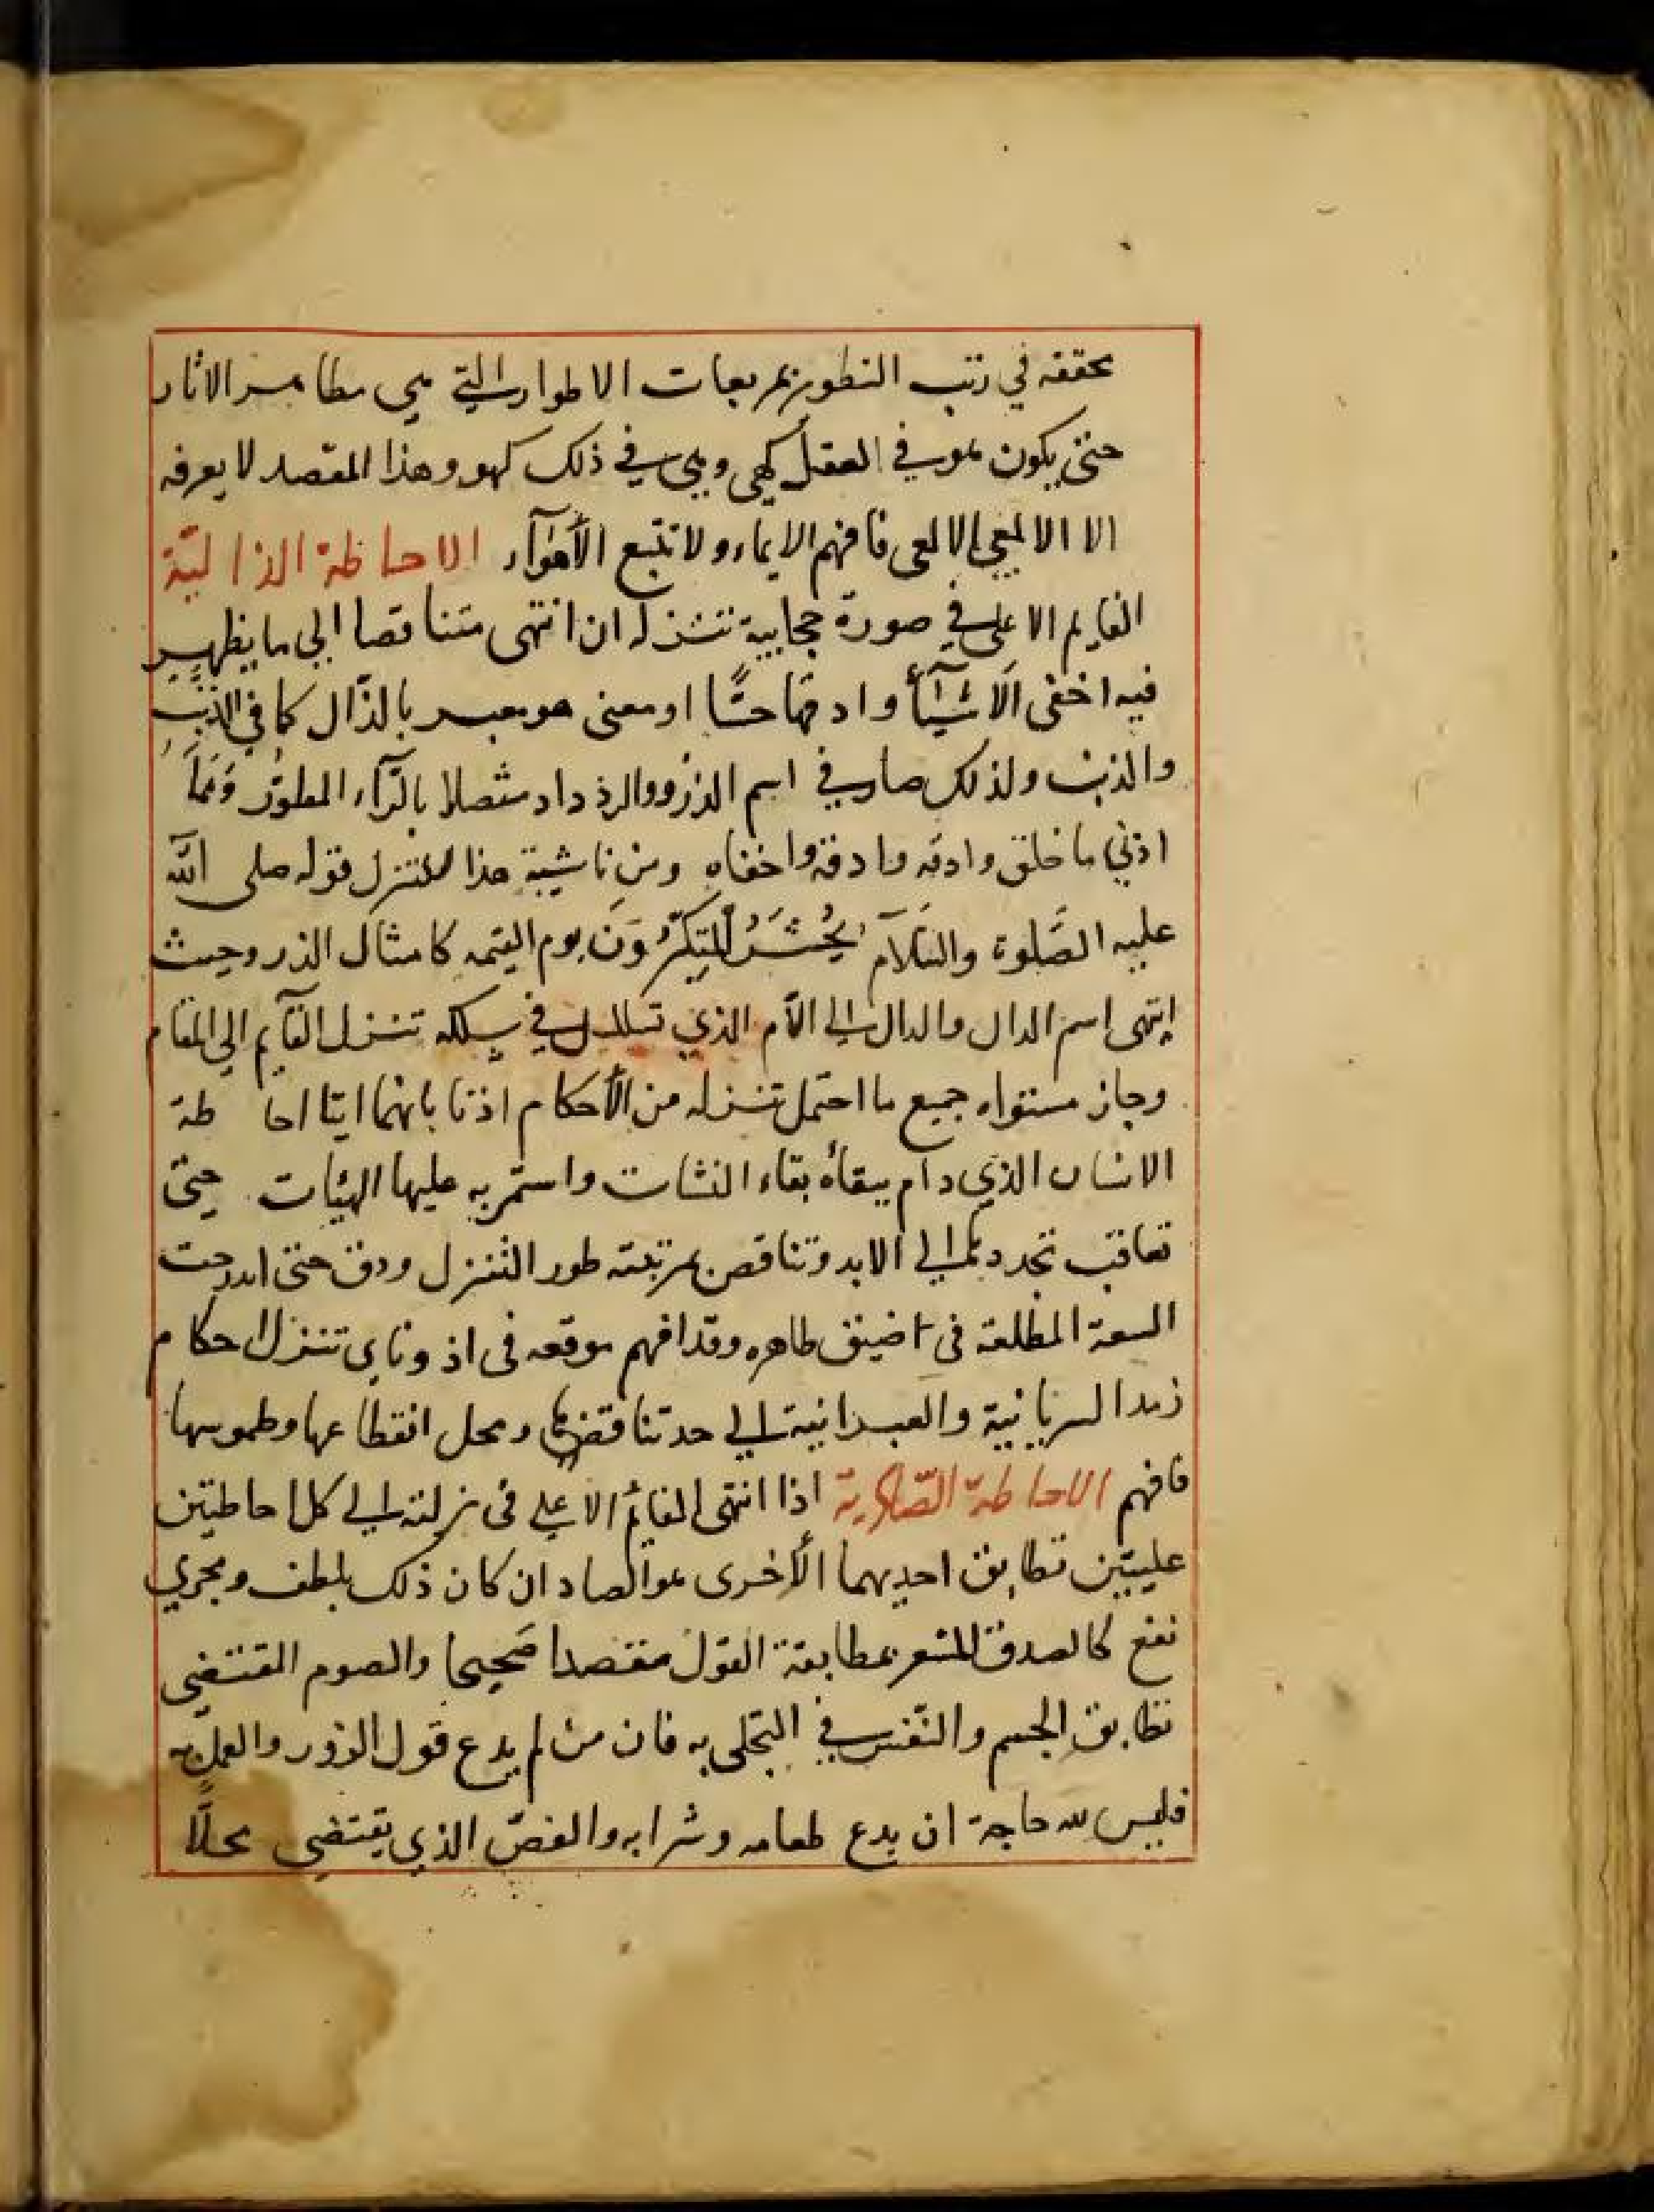 محققه في رتب التطوير بمربعات الاطوار التي هي مظاهر الاثار
حتى يكون هو في العقل كهي وهي في ذلك كهو وهذا المقصد لا يعرفه
الا الالمعي فافهم الايماء ولا تتبع الأهوآء الاحاطة الذالية
القايم الاعلى في صورة حجابية تنزله ان انتهى متناقصا الى ما يظهر
فيه اخفى الاشيآء وادقها حسّا او معنى هو معبر بالذّال كما في الذنب
والذنب ولذلك صار في اسم الذر متصلا بالرّآء
ادنى ما خلق وادقه واخفاه ومن ناشية هذا التنزل قوله صلى الله
عليه الصّلوة والسّلام يُحْشَرُ المتكبّرُونَ يوم القيمه كامثال الذر وحيث
انتهى اسم الدال والذال الى اللام الذي تسلسل في سلكه تنزل القآيم الى المقام
وجاز مستواه جميع ما احتمل تنزله من الأحكام اذنا بانهما احاطة
الانسان الذي دام ببقاه بقاء النشات واستمر به عليها الهيئات حتى
تعاقب تجدد الى الابد وتناقص بمرتبته طور التنزل ودق حتى اندرجت
السعة المطلقة في اضيق ظاهره وقد افهم موقعه في اذ تنزل احكام
السريانية والعبرانية الى حد تناقضهما ومحل انقطاعها وطموسها
فافهم الاحاطة الصّادية اذا انتهى القايم الاعلى في نزلته الى كل احاطتين
عليتين تطابق احديهما الأخرى هو الصاد ان كان ذلك بلطف ومجرى
نفع كالصدق المشعر بمطابقة القول مقتصدا صحيحا والصوم المقتضى
تطابق الجسم والنّفس في التحلي به فان من لم يدع قول الزور والعمل به
فليس لله حاجة ان يدع طعامه وشرابه والفصّ الذي يقتضي محلّا